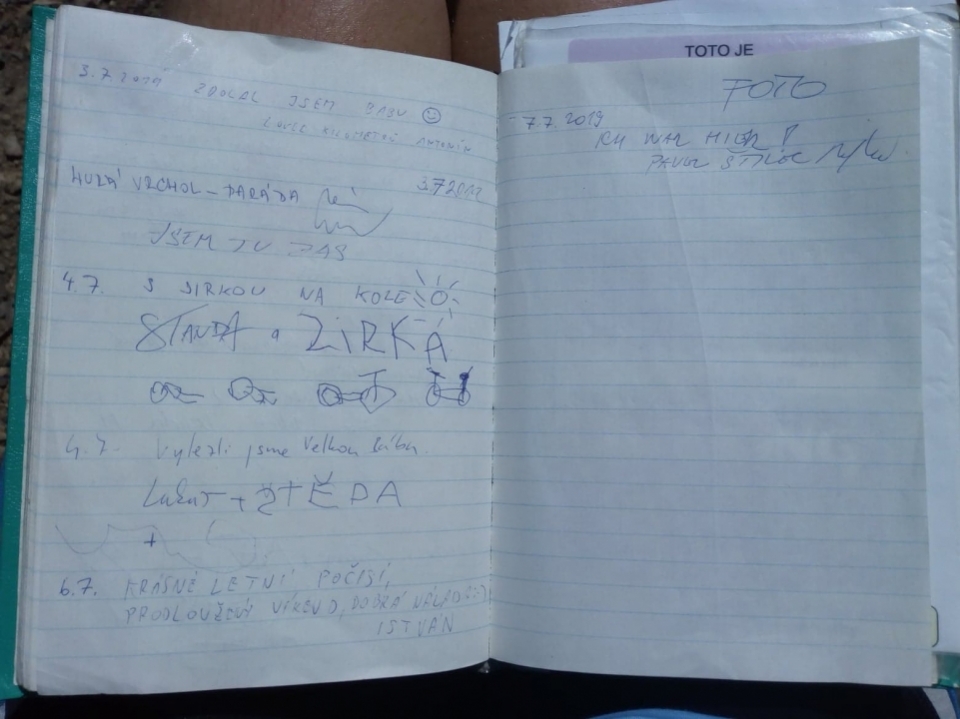 3.7 2019 ZDOLAL JSEM BABU
LOVEC KILOMETRŮ ANTONÍN
HURÁ VRCHOL - PARÁDA 3.7 2019
JSEM TU ZAS
4.7. S SIRKOU NA KOLE
STANDA a ZIRKA
4.7. Vylezli jsme Velkou bábu.
+ ŠTĚDA
+
6.7. KRÁSNÉ LETNÍ POČISÍ,
PRODLOUŽENÝ VÍKEND, DOBRÁ NÁLADA :-)
ISTVAN
TOTO JE
FOTO
7.7. 2019
PAVEL